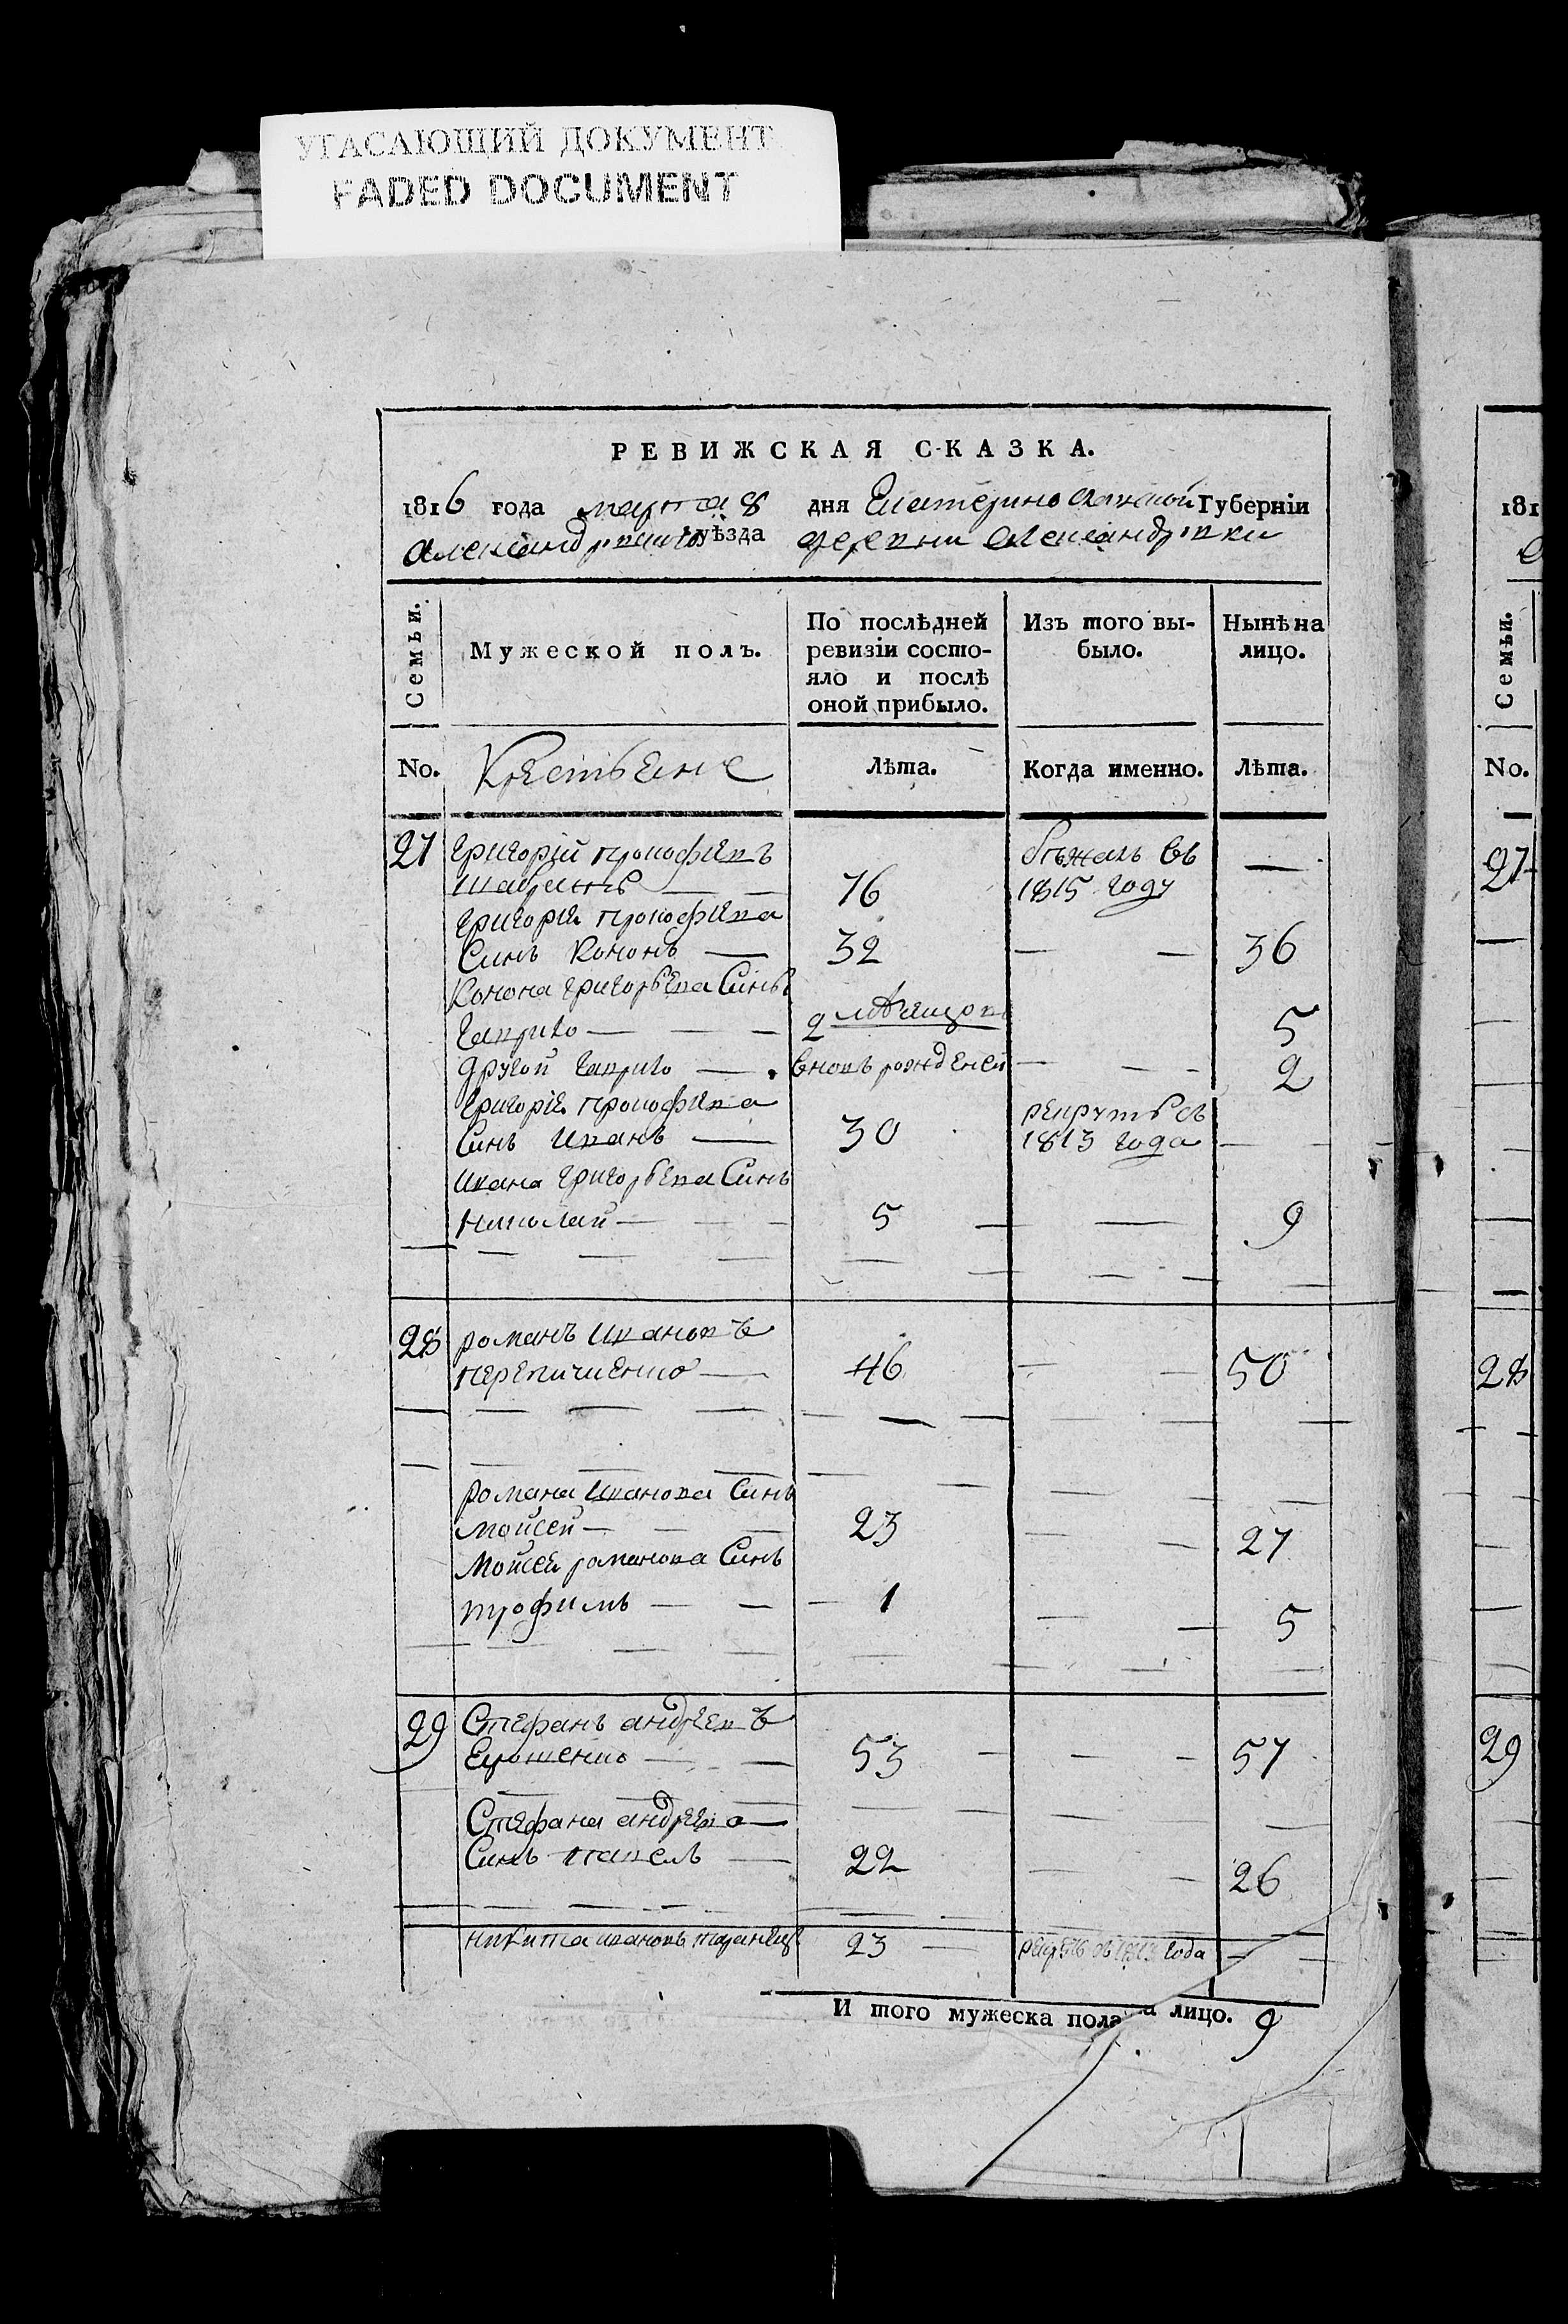 УГАСАЮЩИЙ ДОКУМЕНТ
FADED DOCUMENT
РЕВИЖСКАЯ СКАЗКА.
1816 года марта 8 дня Екатеринославской Губерніи
Александрійского уѣзда деревни Александровки
Семьи.
Мужеской полъ.
По послѣдней ревизіи состо-
яло и послѣ
оной прибыло.
Изъ того вы-
было.
Нынѣ на
лицо.
No. Крестьяне Лѣта. Когда именно. Лѣта.
27 Григорій прокофьевъ бѣжалъ въ —
76 1815 году
Григорія прокофьева
Синъ Кононъ — 32 — — 36
Конона Григорьева Синъ
Гаврило — — — 2 5
другой Гаврило — вновь рожденей — — — 2
Григорія прокофьева рекрутъ съ
Синъ Иванъ — 30 1813 года — —
Ивана Григорьева Синъ
Николай — — — 5 — — 9
28 романъ Ивановъ
46 — — 50
романа Иванова Синъ
мойсей — — — 23 — — 27
Мойсея романова Синъ
трофимъ — — — 1 — — 5
29 Стефанъ андреевъ
Ерошенко — — 53 — — — 57
Стефана андреева —
Синъ павелъ — 22 — — 26
никита ивановъ 23 — года — —
И того мужеска пола на лицо. 9
181
Семьи.
No.
27
28
29